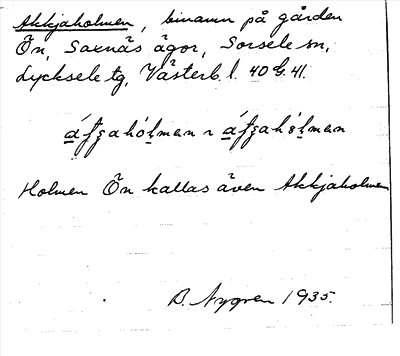 Akkjaholmen, binamn på gården
Ön, Saxnäs ägor, Sorsele sn,
Lycksele tg, Västerb. l. 40 G. 41.
áʃʒahólman ~ áʃʒahólman
Holmen Ön kallas även Akkjaholmen
B. Nygren 1935.